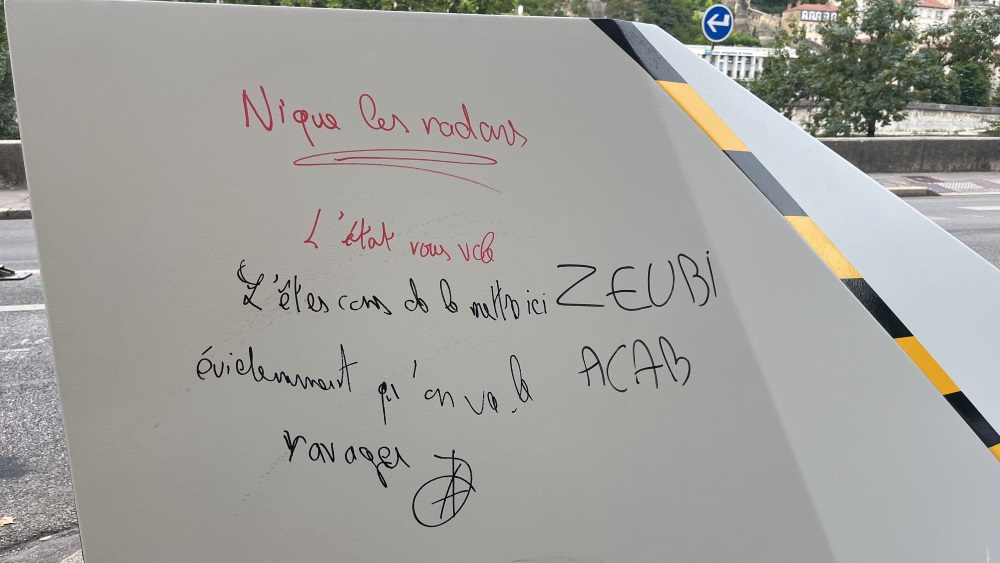 Nique les radars
L'état vous vole
L'êtes cons de le mettre ici ZEUBi
évidemment qu'on va le ACAB
ravager